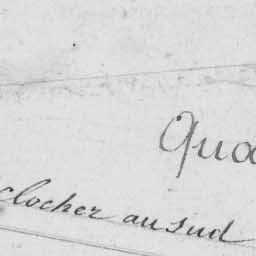 Qua
clocher au sud